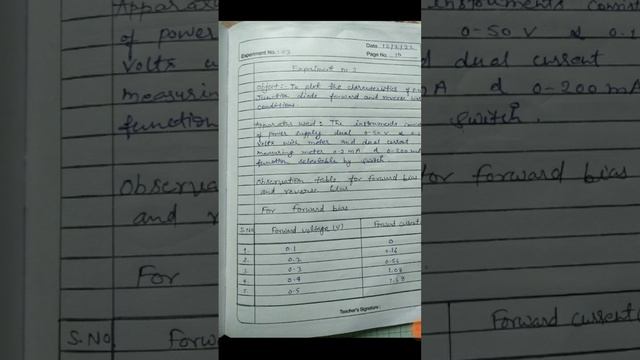 Experiment No. 03
Date 12/3/22
Page No. 14
Experiment no 3
Object:- To plot the charcteristics of P.N
Junction diode forward and reverse bias
conditions
Apparatus used: The instruments
of power supply dual 0-50 V &
Volts with meter and dual current
measuring meter 0-2 mA & 0-200 mA
function selectable by switch
Observation table for forward bias
and reverse bias
For forward bias
S.No Forward voltage (V) Forward current
1. 0.1 0
2. 0.2 0.16
3. 0.3 0.56
4. 0.4 1.08
5. 0.5
Teacher's Signature: